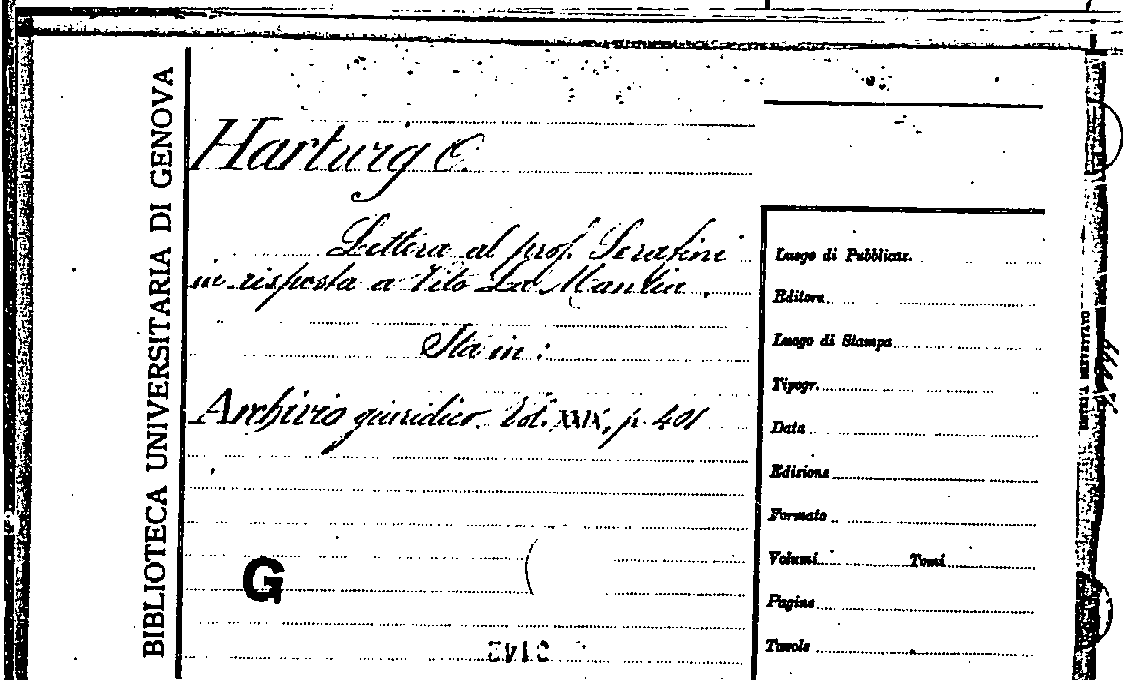 BIBLIOTECA UNIVERSITARIA DI GENOVA
Harturg O.
Lettera al prof. Serafini
in risposta a Vito La Mantia.
Sta in:
Archivio giuridico. Vol. XXIX, p. 401
G
Luogo di Pubblicaz.
Editore
Luogo di Stampa
Tipogr.
Data
Edizione
Formato
Volumi Tomi
Pagine
Tavole